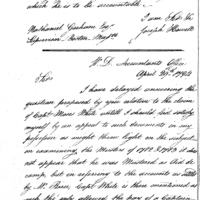 which he is to be accountable.
I am Sir &c
Nathaniel Graham Esqr Joseph Howell
W D. Accountants Office
April 30th 1794
Sir
I have delayed answering the
question proposed by you relative to the claim
of Capt. Moses White until I should satisfy
myself by an appeal to such documents in my
possession as might throw light on the subject
on examining the Musters of 1782 & 1783 it does
not appear that he was Mustered as Aid de
camp but on referring to the accounts as settled
by Mr. Pierce, Capt White is there mentioned as
such the only allowed the pay of a Captain